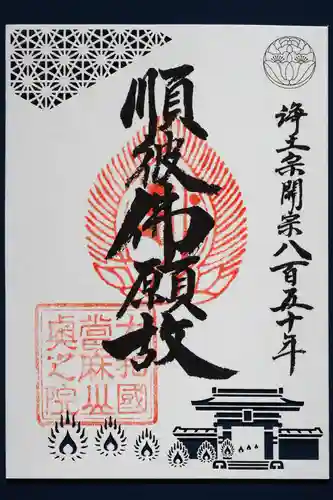 浄土宗開宗八百五十年
順彼佛願故
九州國
當麻山
奥之院